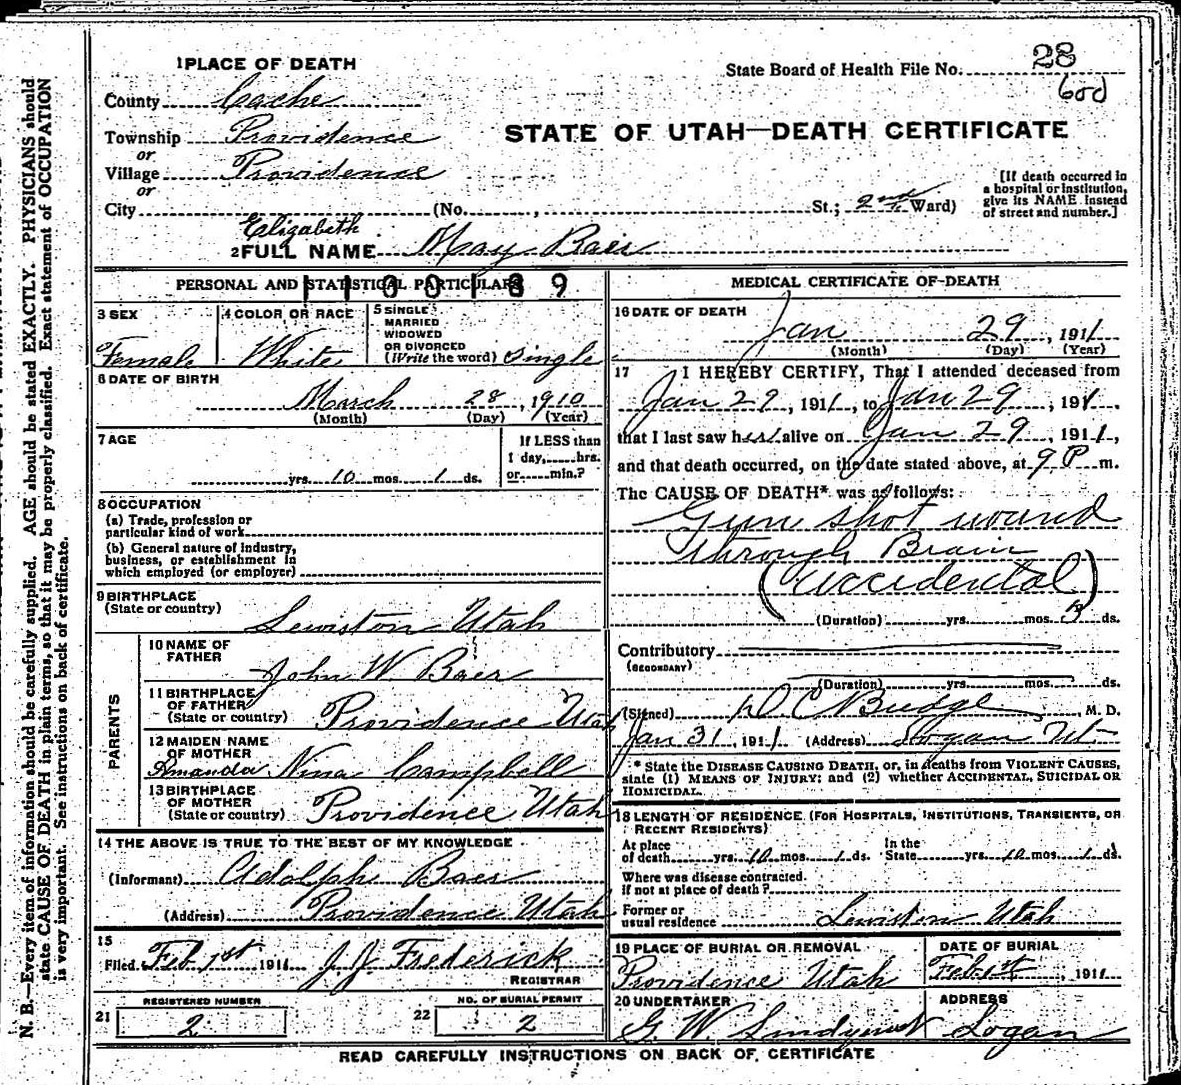 N. B.—Every item of information should be carefully supplied. AGE should be stated EXACTLY. PHYSICIANS should
state CAUSE OF DEATH in plain terms, so that it may be properly classified. Exact statement of OCCUPATION
is very important. See instructions on back of certificate.
1 PLACE OF DEATH
State Board of Health File No. 28
60d
County Cache
Township Providence
or
Village Providence
or
STATE OF UTAH—DEATH CERTIFICATE
City (No. , St.; 2nd Ward)
[If death occurred in
a hospital or institution,
give its NAME instead
of street and number.]
Elizabeth
2 FULL NAME May Baer
PERSONAL AND STATISTICAL PARTICULARS
3 SEX
Female
4 COLOR OR RACE
White
5 SINGLE
MARRIED
WIDOWED
OR DIVORCED
(Write the word) Single
6 DATE OF BIRTH
March 28, 1910
(Month) (Day) (Year)
7 AGE
yrs. 10 mos. 1 ds.
If LESS than
1 day, hrs.
or min.?
8 OCCUPATION
(a) Trade, profession or
particular kind of work
(b) General nature of industry,
business, or establishment in
which employed (or employer)
9 BIRTHPLACE
(State or country)
Lewiston Utah
PARENTS
10 NAME OF
FATHER
John W Baer
11 BIRTHPLACE
OF FATHER
(State or country) Providence Utah
12 MAIDEN NAME
OF MOTHER
Amanda Nina Campbell
13 BIRTHPLACE
OF MOTHER
(State or country) Providence Utah
14 THE ABOVE IS TRUE TO THE BEST OF MY KNOWLEDGE
(Informant) Adolph Baer
(Address) Providence Utah
15
Filed Feb 1st 1911 J J Frederick
REGISTRAR
REGISTERED NUMBER
21 2
NO. OF BURIAL PERMIT
22 2
MEDICAL CERTIFICATE OF DEATH
16 DATE OF DEATH
Jan 29, 1911
(Month) (Day) (Year)
17 I HEREBY CERTIFY, That I attended deceased from
Jan 29, 1911, to Jan 29, 1911.
that I last saw her alive on Jan 29, 1911,
and that death occurred, on the date stated above, at 9 P m.
The CAUSE OF DEATH* was as follows:
Gun shot wound
through Brain
(accidental)
(Duration) yrs. mos. ds.
Contributory
(SECONDARY)
(Duration) yrs. mos. ds.
(Signed) D. C Budge, M. D.
Jan 31, 1911 (Address) Logan Ut
* State the DISEASE CAUSING DEATH, or, in deaths from VIOLENT CAUSES,
state (1) MEANS OF INJURY; and (2) whether ACCIDENTAL, SUICIDAL OR
HOMICIDAL.
18 LENGTH OF RESIDENCE (FOR HOSPITALS, INSTITUTIONS, TRANSIENTS, OR
RECENT RESIDENTS)
At place
of death yrs. 10 mos. 1 ds.
In the
State yrs. 10 mos. 1 ds.
Where was disease contracted.
if not at place of death?
Former or
usual residence Lewiston Utah
19 PLACE OF BURIAL OR REMOVAL
Providence Utah
DATE OF BURIAL
Feb 1st, 1911
20 UNDERTAKER
G. W. Lindquist
ADDRESS
Logan
READ CAREFULLY INSTRUCTIONS ON BACK OF CERTIFICATE